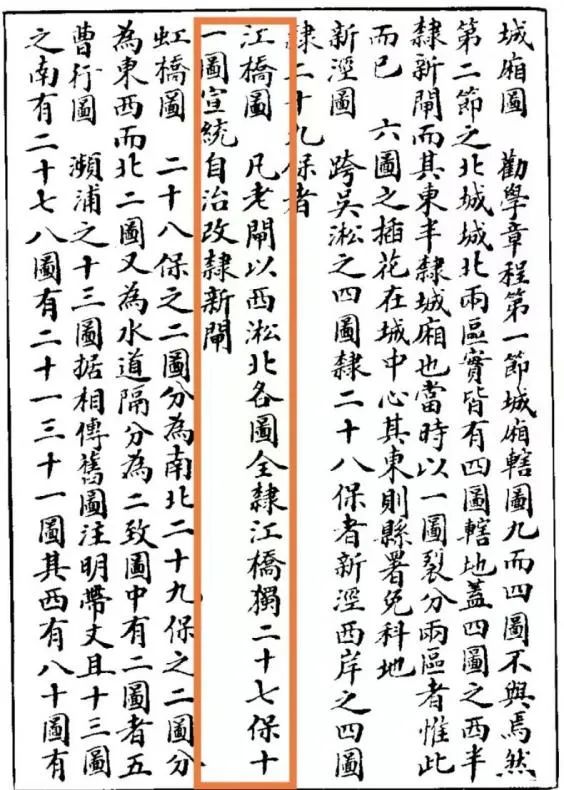 城廂圖　勸學章程第一節城廂轄圖九而四圖不與焉然
第二節之北城城北兩區實皆有四圖轄地蓋四圖之西半
隸新閘而其東半隸城廂也當時以一圖裂分兩區者惟此
而已　六圖之插花在城中心其東則縣署免科地
新涇圖　跨吳淞之四圖隸二十八保者新涇西岸之四圖
隸二十九保者
江橋圖　凡老閘以西淞北各圖全隸江橋獨二十七保十
一圖宣統自治改隸新閘
虹橋圖　二十八保之二圖分為南北二十九保之二圖分
為東西而北二圖又為水道隔分為二致圖中有二圖者五
曹行圖　瀕浦之十三圖据相傳舊圖注明帶丈且十三圖
之南有二十七八圖有二十一三十一圖其西有八十圖有